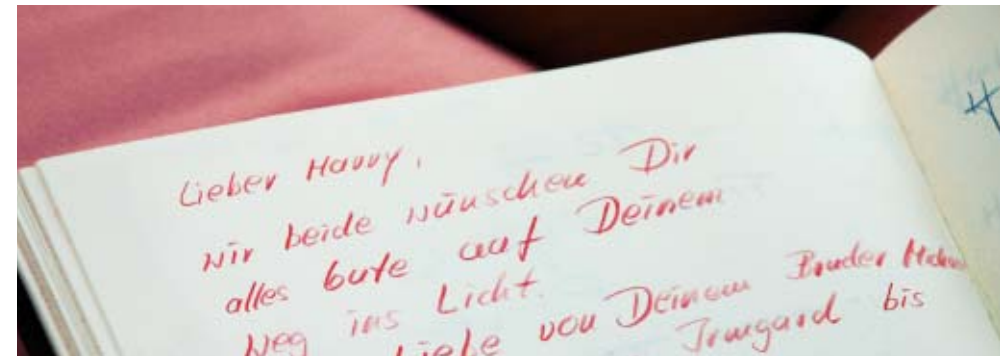 Lieber Harry,
wir beide wünschen Dir
alles bute auf Deinem
Weg ins Licht.
Liebe von Deinem Bruder
Irmgard bis